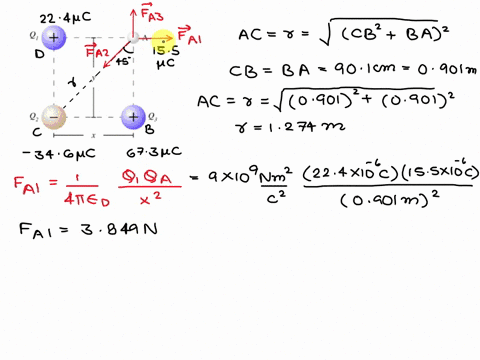 22.4μC
F⃗A3
Q₁
D
F⃗A2
C
A
F⃗A1
45°
15.5
μC
r
Q₂
Q₃
C
x
B
-34.6μC 67.3μC
AC = r = √((CB² + BA)²
CB = BA = 90.1cm = 0.901m
AC = r = √((0.901)² + (0.901)²
r = 1.274 m
F_A1 = 1/(4π∈₀) Q₁Q_A/x² = 9×10⁹Nm²/c² (22.4×10⁻⁶c)(15.5×10⁻⁶c)/(0.901m)²
F_A1 = 3.849N